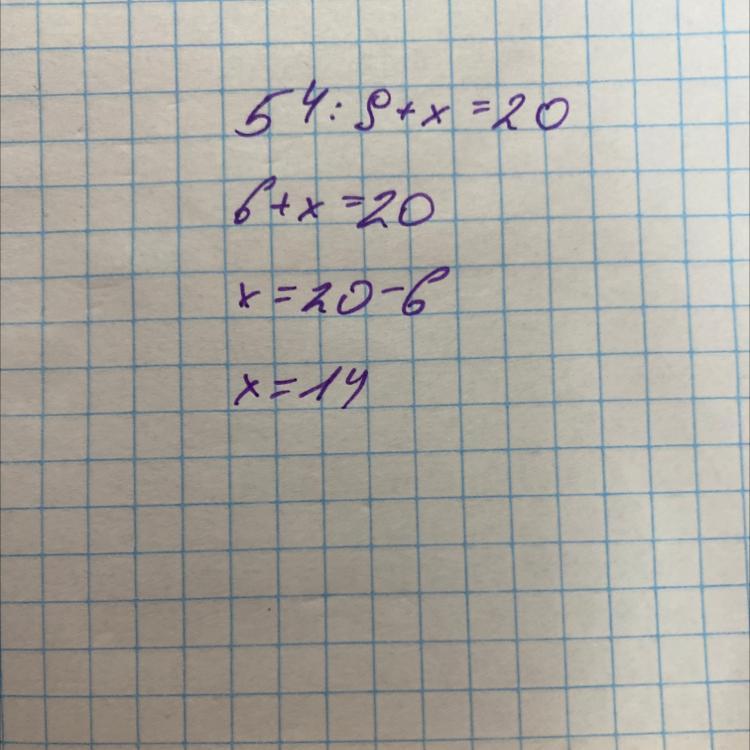 54:9+x=20
6+x=20
x=20-6
x=14